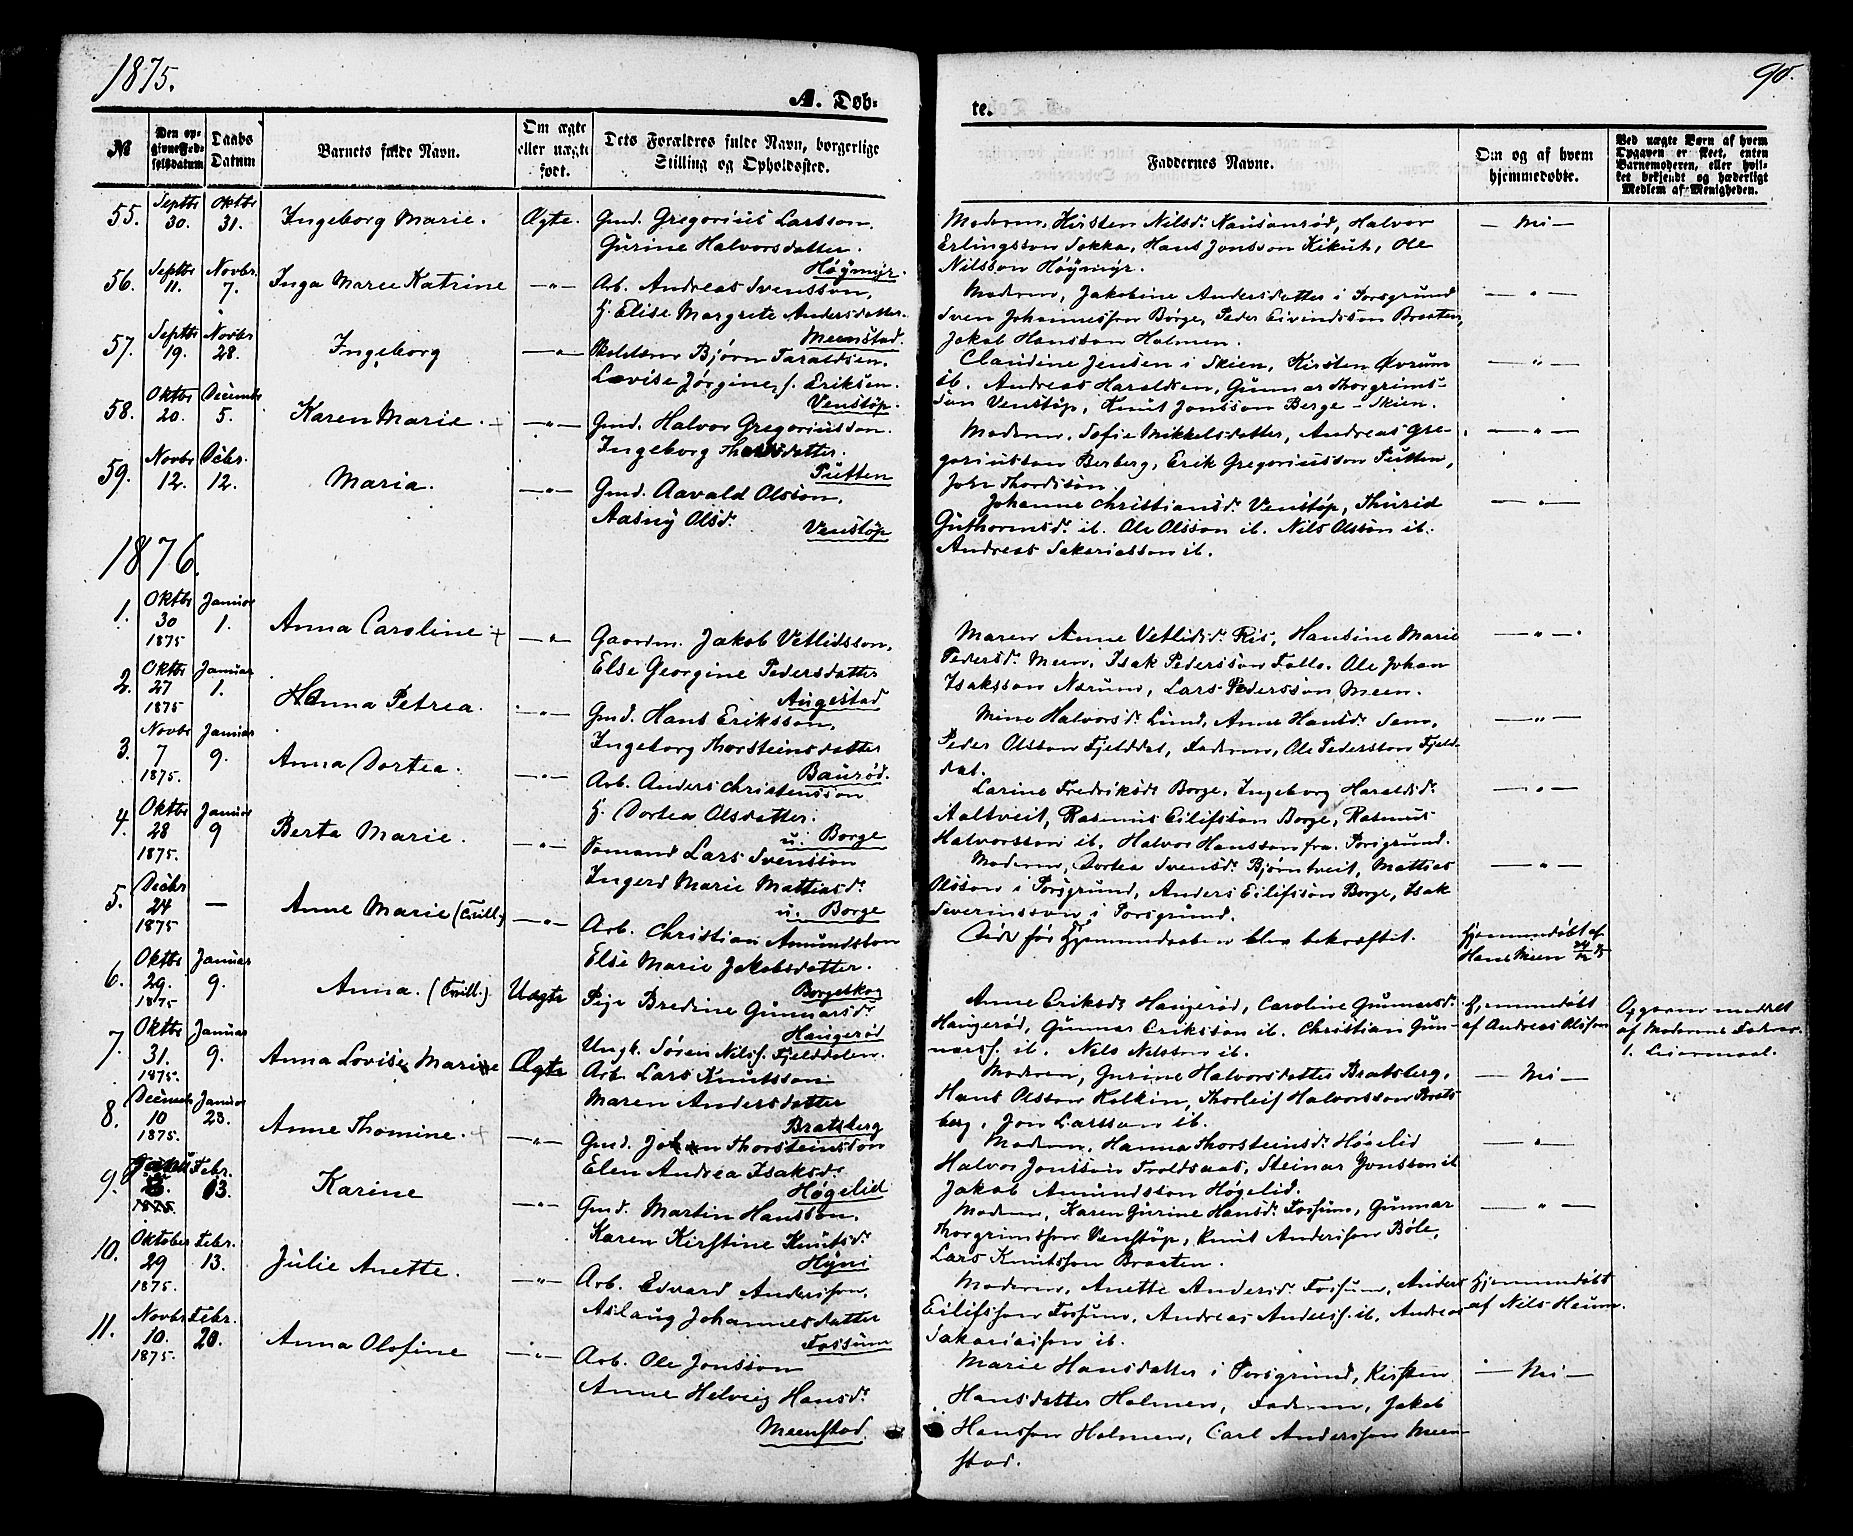 1875.
90.
A. Døb-
te.
№
Den op-
givne Fød-
selsdatum
Daabs
Datum
Barnets fulde Navn.
Om ægte
eller uægte
født.
Dets Forældres fulde Navn, borgerlige
Stilling og Opholdssted.
Faddernes Navne.
Om og af hvem
hjemmedøbt.
Ved uægte Børn af hvem
Opgaven er skeet, enten
Barnemoderen, eller hvil-
ket bekjendt og hæderligt
Medlem af Menigheden.
55. Septbr 30. Oktbr 31. Ingeborg Marie. Ægte. Gmd. Gregorius Larsson.
Gurine Halvorsdatter.
Høymyr.
Moderen, Kirsten Nilsd. Nausanrød, Halvor
Erlingsson Sokka, Hans Jonsson Kikut, Ole
Nilsson Høymyr.
— Nei —
56. Septbr 11. Novbr. 7. Inga Marie Katrine —"— Arb. Andreas Svensson,
H. Elise Margrete Andersdatter.
Meenstad.
Moderen, Jakobine Andersdatter i Porsgrund
Sven Johannesson Borge, Peder Eivindsson Braaten,
Jakob Hansson Holmen.
— " —
57. Septbr 19. Novbr 28. Ingeborg —"— Skolelærer Bjørn Taraldsen.
Lovise Jørgine, f. Eriksen.
Venstøp.
Claudine Jensen i Skien, Kirsten Øvrum
ib. Andreas Haraldsen, Gunnar Thorgrims-
son Venstøp, Knut Jonsson Berge - Skien.
— " —
58. Oktbr 20. Decembr 5. Karen Marie. —"— Gmd. Halvor Gregoriusson.
Ingeborg Thordsdatter.
Putten
Moderen, Sofie Mikkelsdatter, Andreas Gre-
goriusson Berberg, Erik Gregoriusson Putten,
John Thordsson.
— " —
59. Novbr 12. Debr. 12. Maria. —"— Gmd. Aavald Olsson,
Aasny Olsd.
Venstøp
Johanne Christiansd. Venstøp, Thurid
Guthormsd. ib. Ole Olsson ib. Nils Olsson ib.
Andreas Sakariasson ib.
— " —
1876.
1. Oktbr 30 1875 Januar 1. Anna Caroline —"— Gaardm. Jakob Vetlidsson,
Else Georgine Pedersdatter
Augestad
Maren Anne Vetlidsd. Ris, Hansine Marie
Pedersd. Meen, Isak Pedersson Follo. Ole Johan
Isaksson Nærum, Lars Pedersson Meen.
— " —
2. Oktbr 27 1875 Januar 1. Hanna Petrea. —"— Gmd. Hans Eriksson,
Ingeborg Thorsteinsdatter
Baurød.
Mine Halvorsd. Lund, Anne Hansd. Sem,
Peder Olsson Fjelddal, Faderen, Ole Pedersson Fjeld-
dal.
— " —
3. Novbr 7 1875. Januar 9. Anna Dortea. —"— Arb. Anders Christensson
H. Dortea Olsdatter.
u. Borge
Larine Fredriksd. Borge, Ingeborg Haraldsd.
Aaltveit, Rasmus Eilifsson Borge, Rasmus
Halvorsson ib. Halvor Hansson fra Porsgrund.
— " —
4. Oktbr 28 1875. Januar 9 Berte Marie. —"— Sømand Lars Svensson
Ingerd Marie Mattiasd.
u. Borge
Moderen, Dortea Svensd. Bjørntveit, Mattias
Olsson i Porsgrund, Anders Eilifsson Borge, Isak
Severinsson i Porsgrund.
— " —
5. Decbr 24 1875 — Anne Marie (Tvill.) —"— Arb. Christian Amundsson
Else Marie Jakobsdatter.
Borgeskog
Døde før Hjemmedaaben blev bekræftet.
Hjemmedøbt af
Hans Meen 24/12 75
6. Oktbr 29. 1875 Januar 9. Anna. (Tvill.) Uægte Pige Bredine Gunnarsd.
Haugerød
Ungk. Søren Nilss. Fjelddalen.
Anne Eriksd. Haugerød, Caroline Gunnarsd.
Haugerød, Gunnar Eriksson ib. Christian Gun-
narss. ib. Nils Nilsson ib.
Hjemmedøbt
af Andreas Olsson
Opgaven meddelt
af Moderens Fader.
1. Leiermaal.
7. Oktbr 31. 1875. Januar 9. Anna Lovise Marie Ægte Arb. Lars Knutsson
Maren Andersdatter
Bratsberg
Moderen, Gurine Halvorsdatter Bratsberg,
Hans Olsson Kolkin, Thorleif Halvorsson Brats-
berg, Jon Larsson ib.
— Nei —
8. Decembr 10 1875. Januar 23. Anne Thomine. —"— Gmd. Johan Thorsteinsson
Elen Andrea Isaksd.
Høgelid
Moderen, Hanna Thorsteinsd. Høgelid
Halvor Jonsson Troldsaas, Steinar Jonsson ib
Jakob Amundsson Høgelid.
— " —
9. 1875 Febr. 13. Karine —"— Gmd. Martin Hansson,
Karen Kirstine Knutsd.
Hyni
Moderen, Karen Gurine Hansd. Fossum, Gunnar
Thorgrimsson Venstøp, Knut Andersson Bøle,
Lars Knutsson Braaten.
— " —
10. Oktober 29 1875. Febr. 13. Julie Anette. —"— Arb. Edvard Andersson,
Aslaug Johannesdatter
Fossum
Moderen, Anette Andersd. Fossum, Anders
Eilifsson Fossum, Andreas Anderss. ib. Andreas
Sakariasson ib.
Hjemmedøbt
af Nils Heum.
11. Novbr 10. 1875. Febr. 20. Anna Olofine —"— Arb. Ole Jonsson
Anne Helvig Hansd.
Meenstad
Marie Hansdatter i Porsgrund, Kirsten
Hansdatter Holmen, Faderen, Jakob
Hansson Holmen, Carl Andersson Meen-
stad.
— Nei —